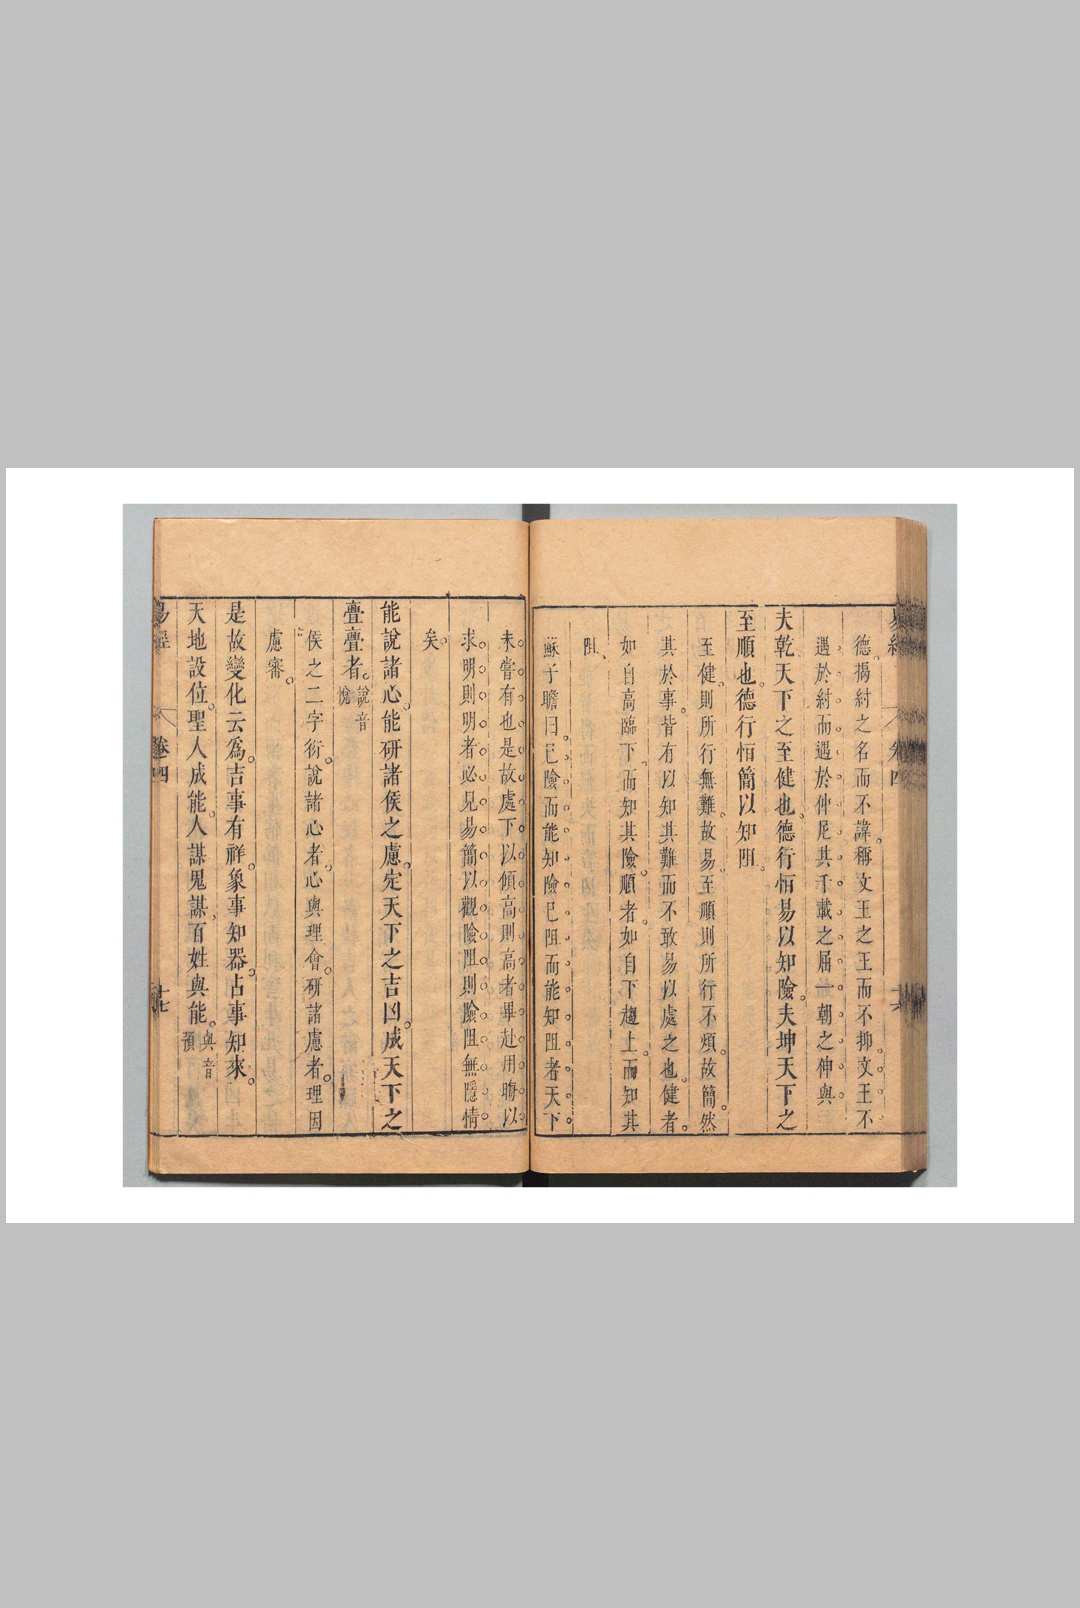 易經
卷四
德揭紂之名而不諱稱文王之王而不抑文王不
遇於紂而遇於仲尼其千載之屈一朝之伸與
夫乾天下之至健也德行恒易以知險夫坤天下之
至順也德行恒簡以知阻
至健則所行無難故易至順則所行不煩故簡然
其於事皆有以知其難而不敢易以處之也健者
如自高臨下而知其險順者如自下趨上而知其
阻
蘇子瞻曰已險而能知險已阻而能知阻者天下
未嘗有也是故處下以傾高則高者畢赴用晦以
求明則明者必見易簡以觀險阻則險阻無隱情
矣
能說諸心能研諸侯之慮定天下之吉凶成天下之
亹亹者說音悅
侯之二字衍說諸心者心與理會研諸慮者理因
慮審
是故變化云為吉事有祥象事知器占事知來
天地設位聖人成能人謀鬼謀百姓與能與音預
易經
卷四
十七